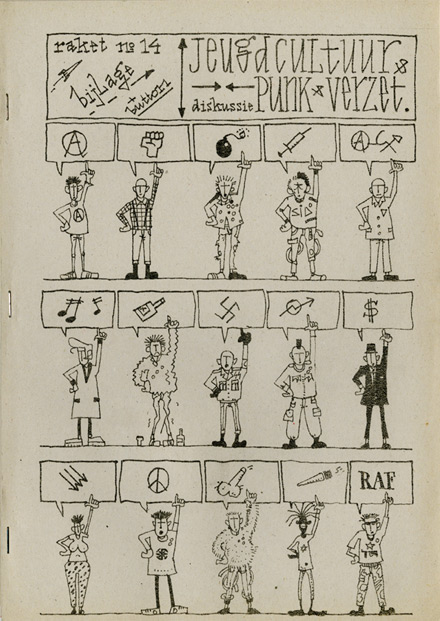 raket no 14
bijlage
+ button!
Jeugdcultuur &
diskussie PUNK & Verzet.
A
A
$
RAF